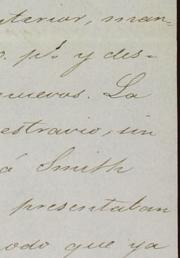 nterior, man-
o. pº y des-
nuevos. La
estravio, sin
á Smith
presentaban
odo que ya